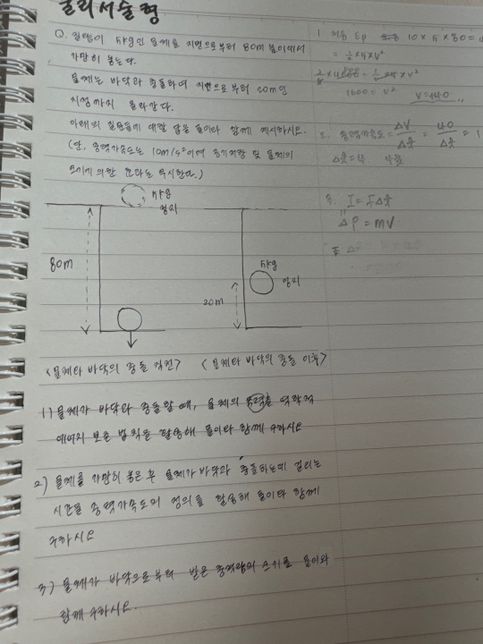 물리서술형
Q. 질량이 5kg인 물체를 지면으로부터 80m 높이에서
가만히 놓는다.
물체는 바닥과 충돌하여 지면으로부터 20m인
지점까지 올라간다.
아래의 질문들에 대한 답을 풀이와 함께 제시하시오.
(단, 중력가속도는 10m/s²이며 공기저항 및 물체의
크기에 의한 효과는 무시한다.)
5kg
정지
80m
5kg
정지
20m
<물체와 바닥의 충돌 직전>
<물체와 바닥의 충돌 이후>
1) 물체가 바닥과 충돌할 때, 물체의 속력을 역학적
에너지 보존 법칙을 활용해 풀이와 함께 구하시오
2) 물체를 가만히 놓은 후 물체가 바닥과 충돌하는데 걸리는
시간을 중력가속도의 정의를 활용해 풀이와 함께
구하시오
3) 물체가 바닥으로부터 받은 충격량의 크기를 풀이와
함께 구하시오.
1. Ep 10×5×80=4
= ½×5×V²
1600 = V²
V=40
2. 중력가속도 = ΔV/Δt = 40/Δt = 1
Δt=4
3. I = FΔt
Δp = mv